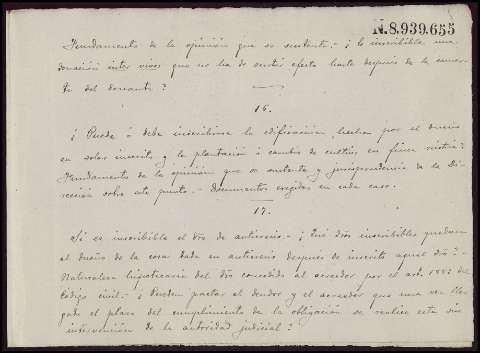 N.8.939.655
Fundamento de la opinión que se sustente.- ¿Es inscribible una
donación inter vivos que no ha de surtir efecto hasta despues de la muer-
te del donante?
16.
¿Puede ó debe inscribirse la edificación hecha por el dueño
en solar inscrito y la plantación ó cambio de cultivo en finca rústica?
Fundamento de la opinión que se sustente y jurisprudencia de la Di-
rección sobre este punto.- Documentos exigidos en cada caso.
17.
Si es inscribible el dro de anticresis.- ¿Qué dros inscribibles quedan
al dueño de la cosa dada en anticresis despues de inscrito aquel dro?-
Naturaleza hipotecaria del dro concedido al acreedor por el art.
Código civil.- ¿Pueden pactar el deudor y el acreedor que una vez lle-
gado el plazo del cumplimiento de la obligación se realice esta sin
intervención de la autoridad judicial?